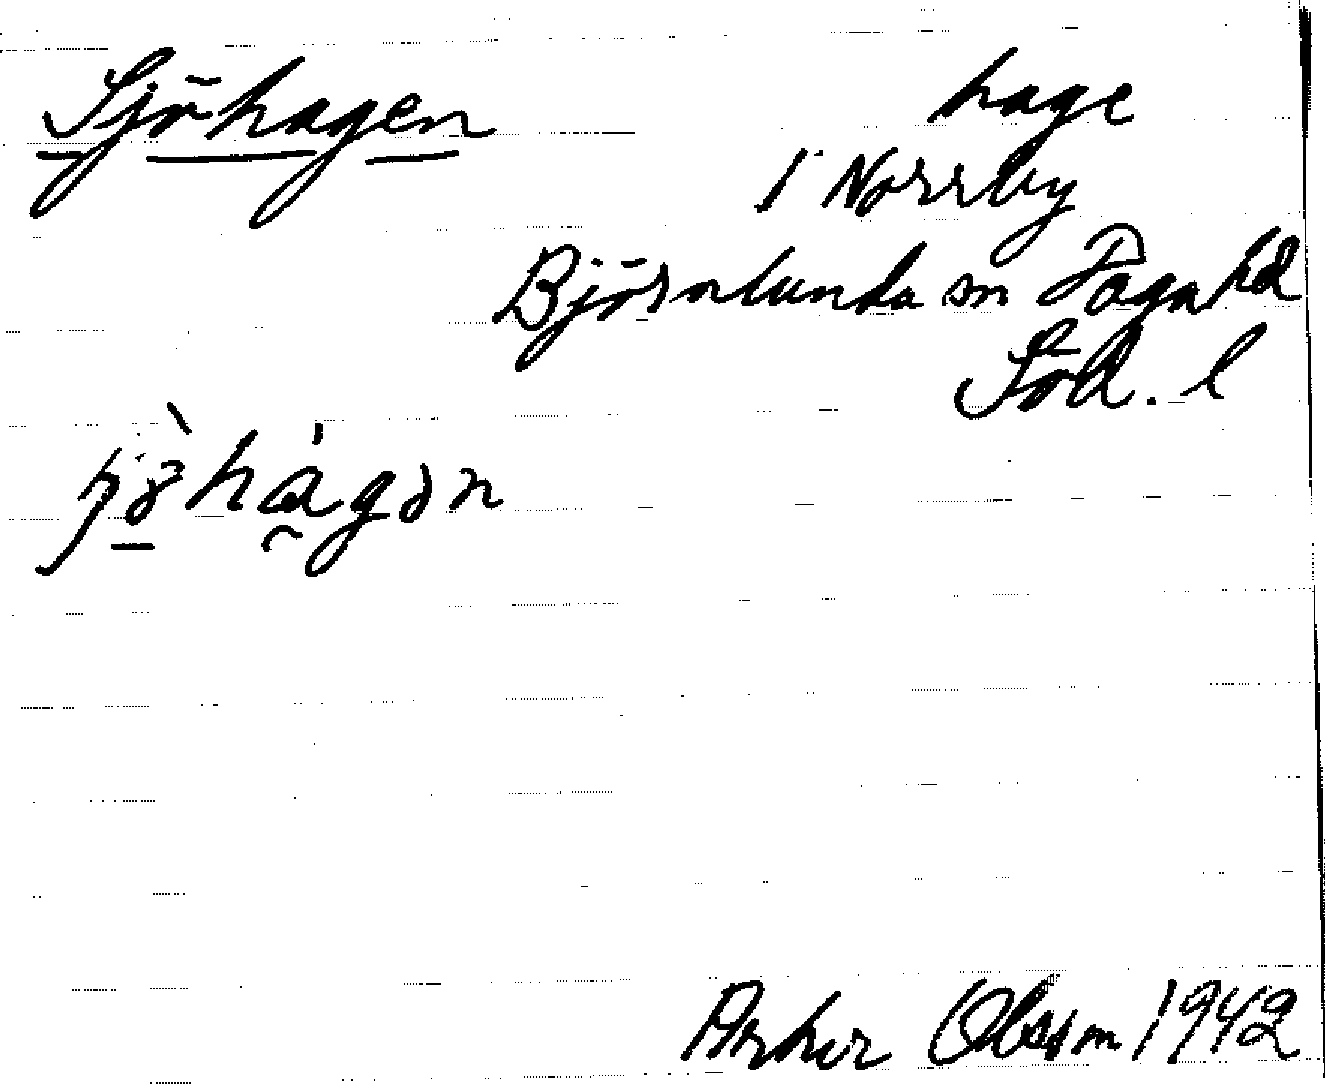 Sjöhagen
hage
i Norrby
Björnlunda sn Daga hd
Söd. l
Arthur Olsson 1942